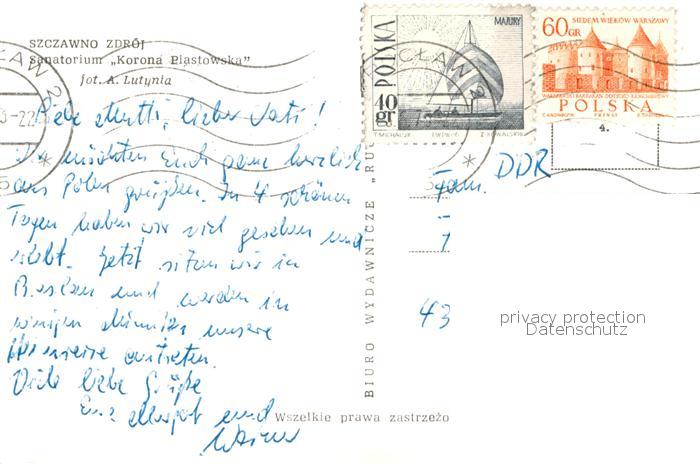 SZCZAWNO ZDRÓJ
Sanatorium „Korona Piastowska"
fot. A. Lutynia
Liebe Mutti, lieber Vati!
Wir möchten Euch ganz herzlich
aus Polen grüßen. In 4 schönen
Tagen haben wir viel gesehen und
erlebt. Jetzt sitzen wir in
Breslau und werden in
wenigen Minuten unsere
Heimreise antreten.
Viele liebe Grüße
Eure Margot und
BIURO WYDAWNICZE „RUC
Wszelkie prawa zastrzeżo
MAJURY
POLSKA
40 gr
T. MICHALUK
PWPW
60 GR
SIEDEM WIEKÓW WARSZAWY
POLSKA
4.
Fam. DDR
43
privacy protection
Datenschutz